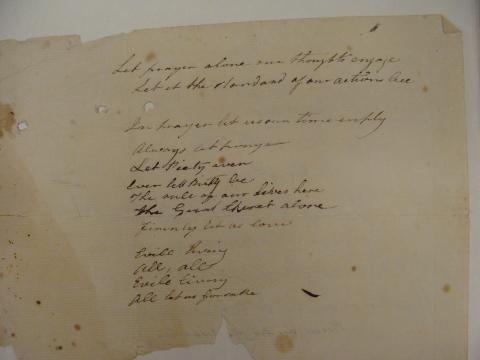 Let prayer alone our thoughts engage
Let it the standard of our actions &c
In prayer let us our time employ
Always at prayer
Let Piety even
Ever let &c
the rule of our lives here
the Great alone
let us love
Evile living
All, all
Evile living
All let us forsake